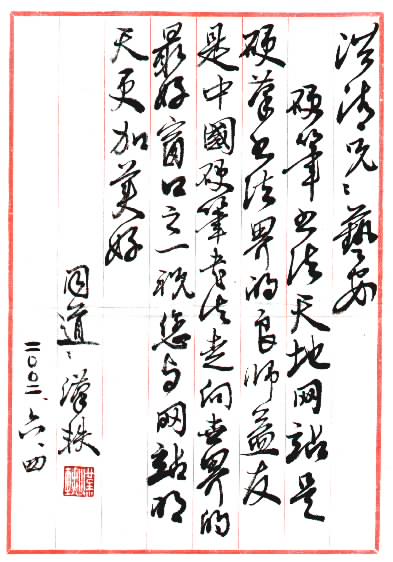 洪涛兄：藝安
硬筆书法天地网站是
硬筆书法界的良师益友
是中國硬筆书法走向世界的
最好窗口之一祝您与网站明
天更加美好
同道：漢
二〇〇二、六、四